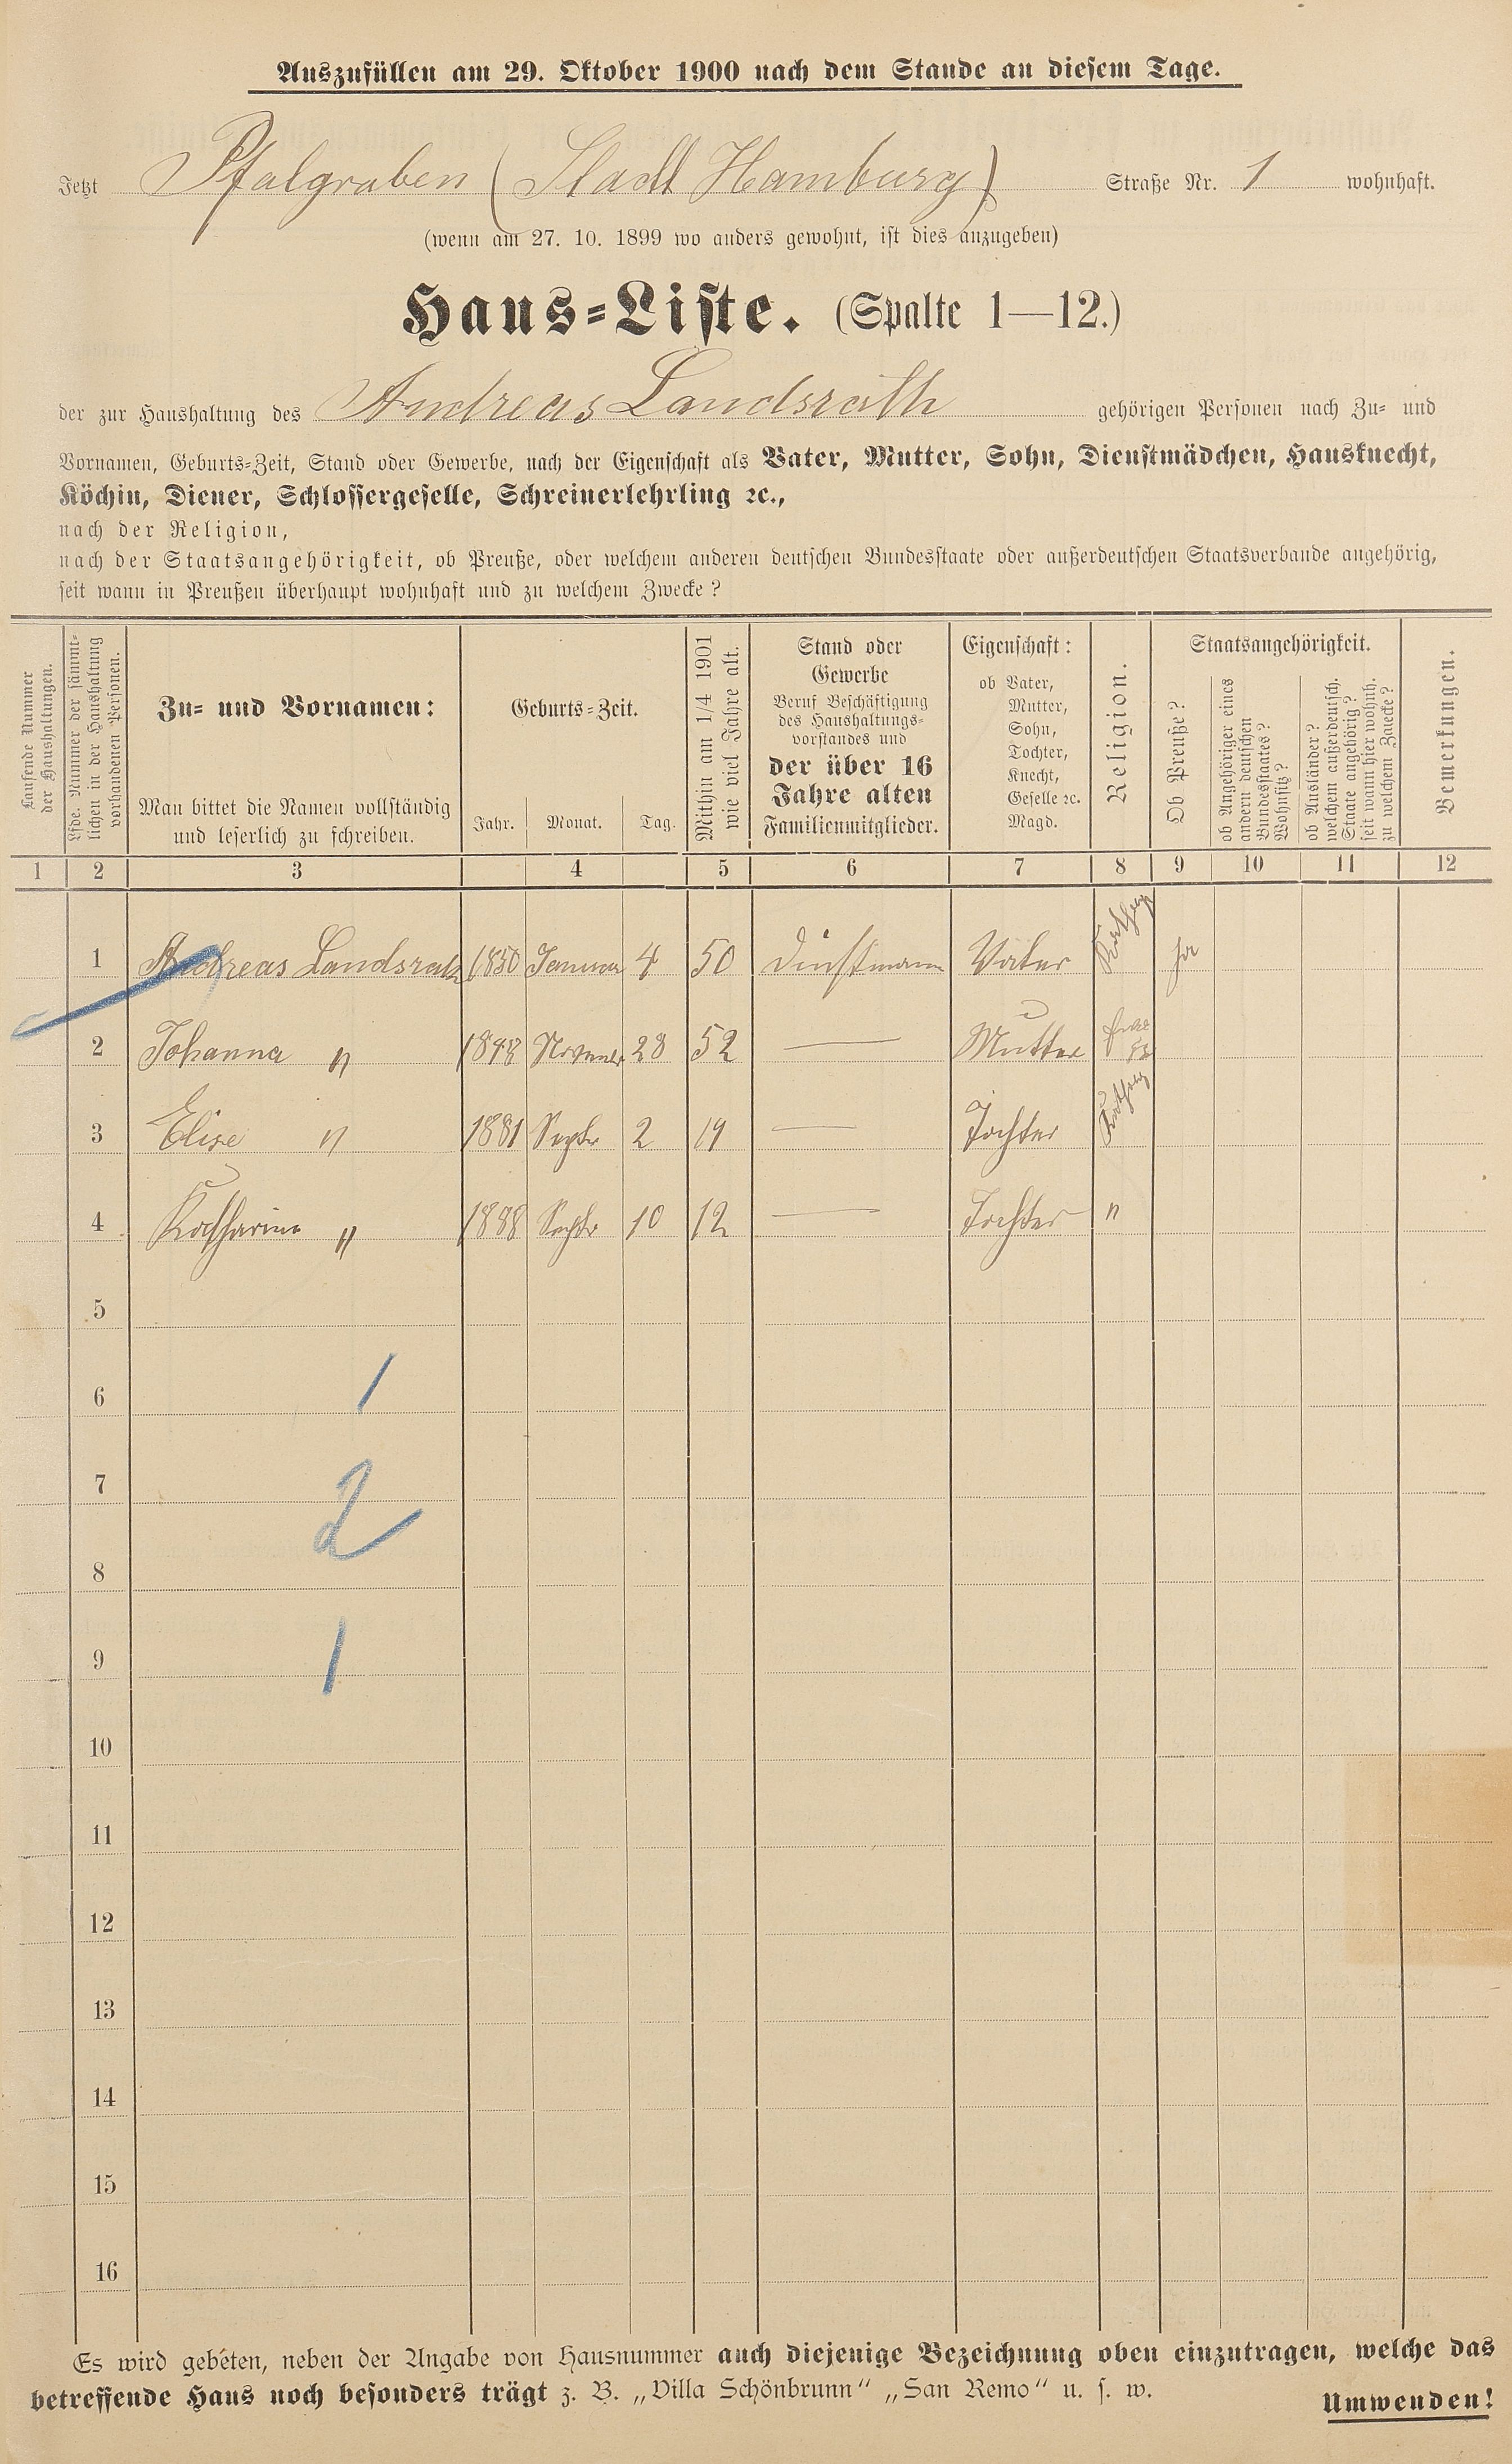 Auszufüllen am 29. Oktober 1900 nach dem Stande an diesem Tage.
Jetzt Pfalgraben (Stadt Hamburg) Straße Nr. 1 wohnhaft.
(wenn am 27. 10. 1899 wo anders gewohnt, ist dies anzugeben)
Haus-Liste. (Spalte 1—12.)
der zur Haushaltung des Andreas Landsrath gehörigen Personen nach Zu- und
Vornamen, Geburts-Zeit, Stand oder Gewerbe, nach der Eigenschaft als Vater, Mutter, Sohn, Dienstmädchen, Hausknecht,
Köchin, Diener, Schlossergeselle, Schreinerlehrling ꝛc.,
nach der Religion,
nach der Staatsangehörigkeit, ob Preuße, oder welchem anderen deutschen Bundesstaate oder außerdeutschen Staatsverbande angehörig,
seit wann in Preußen überhaupt wohnhaft und zu welchem Zwecke?
Laufende Nummer
der Haushaltungen.
Lfde. Nummer der sämmt-
lichen in der Haushaltung
vorhandenen Personen.
Zu- und Vornamen:
Man bittet die Namen vollständig
und leserlich zu schreiben.
Geburts-Zeit.
Jahr. Monat. Tag.
Mithin am 1/4 1901
wie viel Jahre alt.
Stand oder
Gewerbe
Beruf Beschäftigung
des Haushaltungs-
vorstandes und
der über 16
Jahre alten
Familienmitglieder.
Eigenschaft:
ob Vater,
Mutter,
Sohn,
Tochter,
Knecht,
Geselle ꝛc.
Magd.
Religion.
Staatsangehörigkeit.
Ob Preuße?
ob Angehöriger eines
andern deutschen
Bundesstaates?
Wohnsitz?
ob Ausländer?
welchem außerdeutsch.
Staate angehörig?
seit wann hier wohnh.
zu welchem Zwecke?
Bemerkungen.
1 2 3 4 5 6 7 8 9 10 11 12
1 Andreas Landsrath 1850 Januar 4 50 Dienstmann Vater Kathog ja
2 Johanna " 1848 November 28 52 — Mutter
3 Elise " 1881 Septbr 2 19 — Tochter Kathog
4 Katharina " 1888 Septbr 10 12 — Tochter "
5
6
1
7
2
8
9
1
10
11
12
13
14
15
16
Es wird gebeten, neben der Angabe von Hausnummer auch diejenige Bezeichnung oben einzutragen, welche das
betreffende Haus noch besonders trägt z. B. „Villa Schönbrunn“ „San Remo“ u. s. w.
Umwenden!